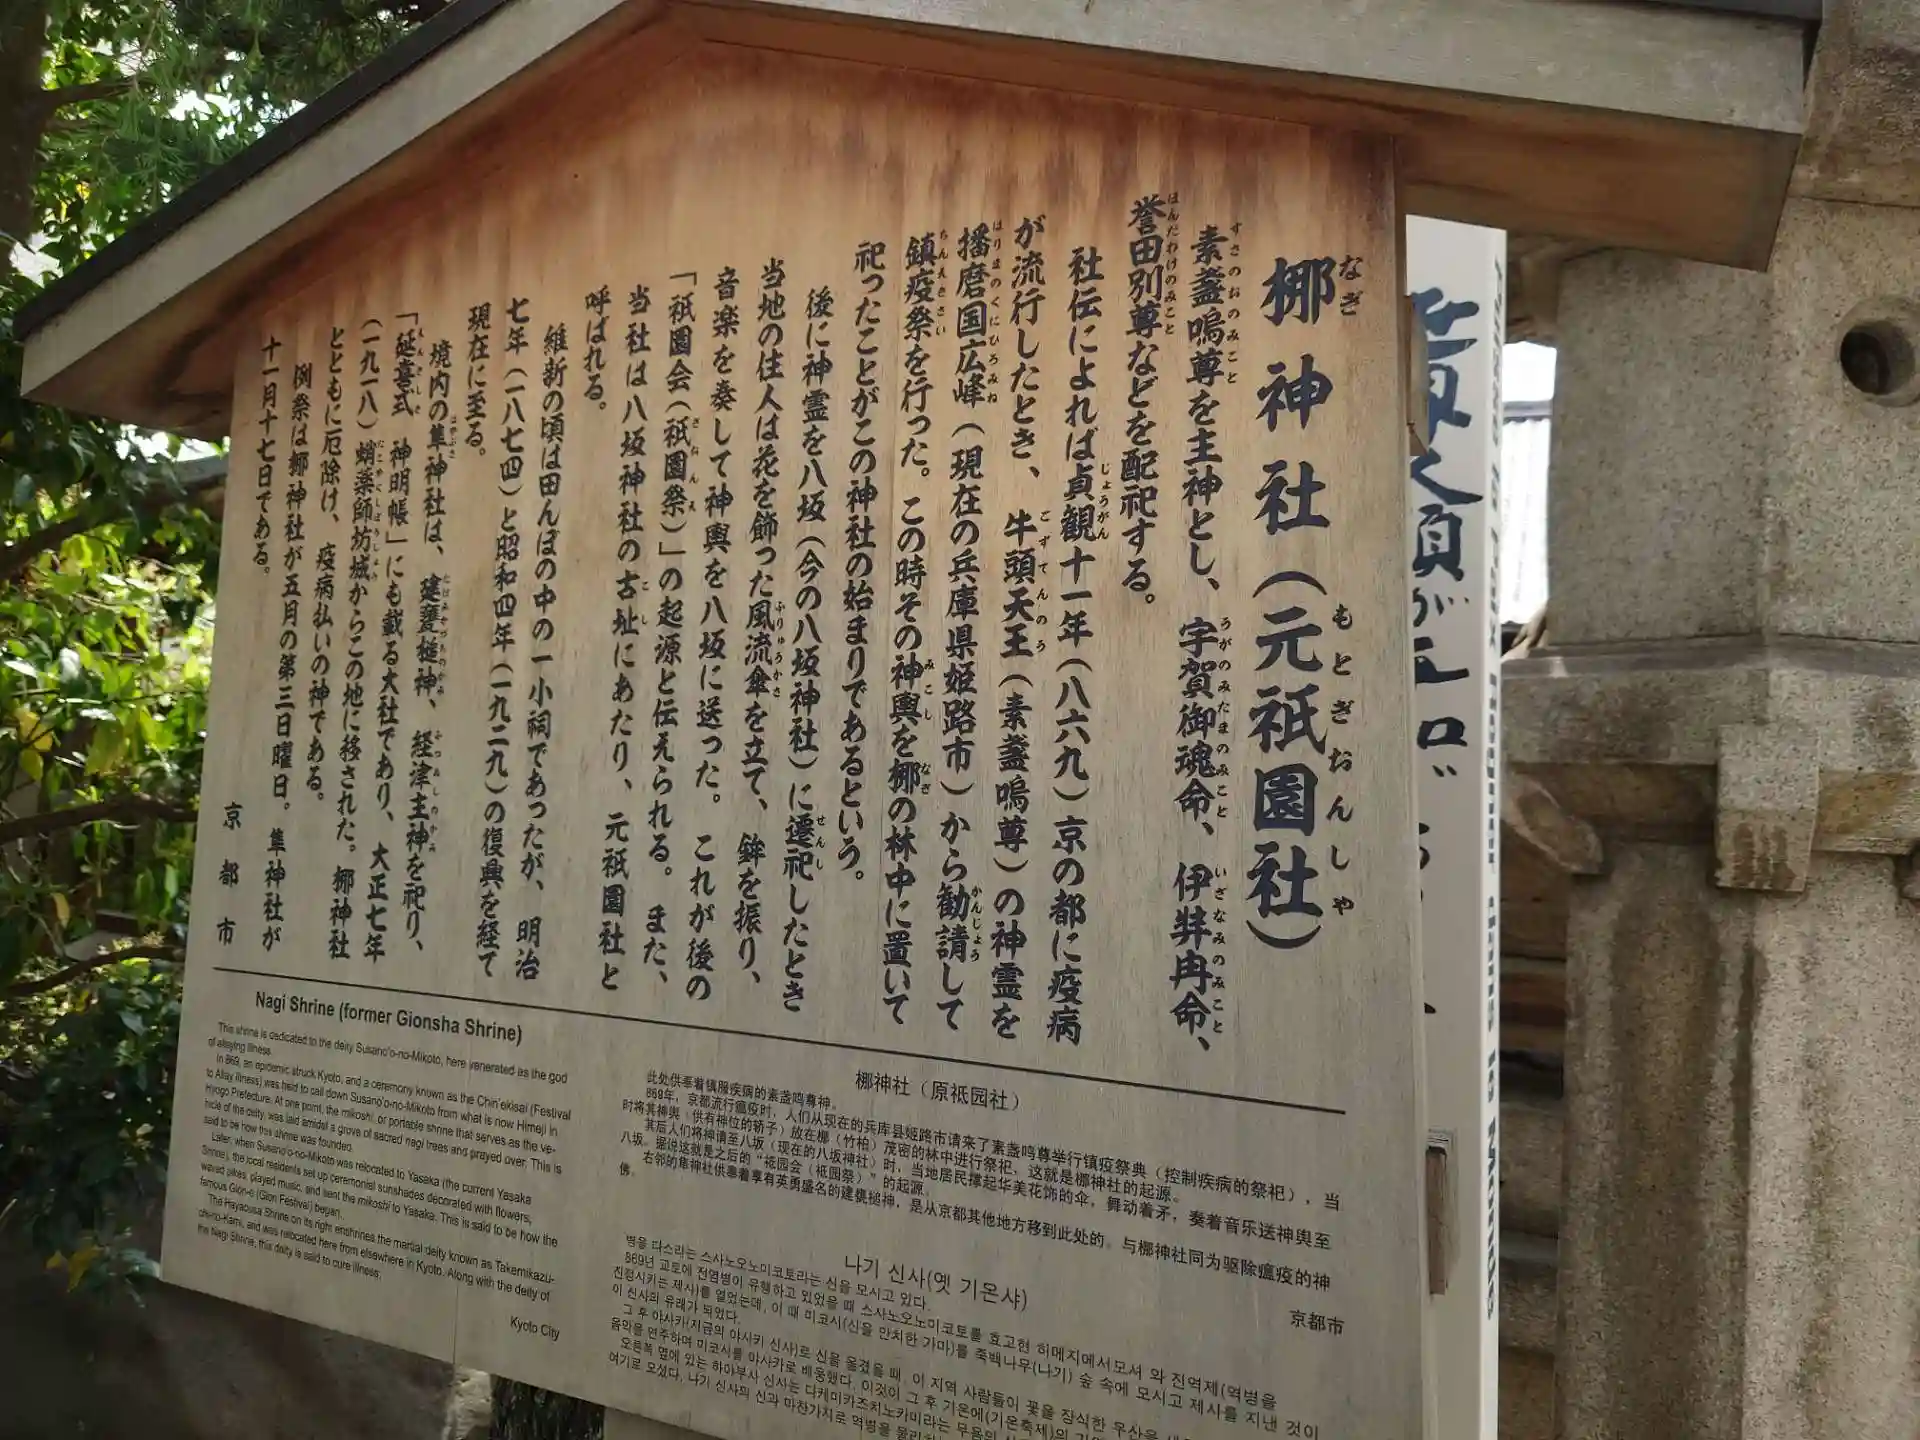 梛神社（元祇園社）
素盞嗚尊を主神とし、宇賀御魂命、伊弉冉命、
誉田別尊などを配祀する。
社伝によれば貞観十一年（八六九）京の都に疫病
が流行したとき、牛頭天王（素盞嗚尊）の神霊を
播磨国広峰（現在の兵庫県姫路市）から勧請して
鎮疫祭を行った。この時その神輿を梛の林中に置いて
祀ったことがこの神社の始まりであるという。
後に神霊を八坂（今の八坂神社）に遷祀したとき
当地の住人は花を飾った風流傘を立て、鉾を振り、
音楽を奏して神輿を八坂に送った。これが後の
「祇園会（祇園祭）」の起源と伝えられる。また、
当社は八坂神社の古址にあたり、元祇園社と
呼ばれる。
維新の頃は田んぼの中の一小祠であったが、明治
七年（一八七四）と昭和四年（一九二九）の復興を経て
現在に至る。
境内の隼神社は、建甕槌神、経津主神を祀り、
「延喜式 神明帳」にも載る大社であり、大正七年
（一九一八）蛸薬師坊城からこの地に移された。梛神社
とともに厄除け、疫病払いの神である。
例祭は梛神社が五月の第三日曜日。隼神社が
十一月十七日である。
京都市
Nagi Shrine (former Gionsha Shrine)
This shrine is dedicated to the deity Susano'o-no-Mikoto, here venerated as the god
of allaying illness.
In 869, an epidemic struck Kyoto, and a ceremony known as the Chin'ekisai (Festival
to Allay Illness) was held to call down Susano'o-no-Mikoto from what is now Himeji in
Hyogo Prefecture. At one point, the mikoshi, or portable shrine that serves as the ve-
hicle of the deity, was laid amidst a grove of sacred nagi trees and prayed over. This is
said to be how this shrine was founded.
Later, when Susano'o-no-Mikoto was relocated to Yasaka (the current Yasaka
Shrine), the local residents set up ceremonial sunshades decorated with flowers,
waved pikes, played music, and sent the mikoshi to Yasaka. This is said to be how the
famous Gion-e (Gion Festival) began.
The Hayabusa Shrine on its right enshrines the martial deity known as Takemikazu-
chi-no-Kami, and was relocated here from elsewhere in Kyoto. Along with the deity of
the Nagi Shrine, this deity is said to cure illness.
Kyoto City
梛神社（原祗园社）
此处供奉着镇服疾病的素盏鸣尊神。
869年，京都流行瘟疫时，人们从现在的兵库县姬路市请来了素盏鸣尊举行镇疫祭典（控制疾病的祭祀），当
时将其神舆（供有神位的轿子）放在梛（竹柏）茂密的林中进行祭祀，这就是梛神社的起源。
其后人们将神请至八坂（现在的八坂神社）时，当地居民撑起华美花饰的伞，舞动着矛，奏着音乐送神舆至
八坂。据说这就是之后的“祗园会（祗园祭）”的起源。
右邻的隼神社供奉着享有英勇盛名的建甕槌神，是从京都其他地方移到此处的。与梛神社同为驱除瘟疫的神
佛。
京都市
나기 신사(옛 기온샤)
병을 다스리는 스사노오노미코토라는 신을 모시고 있다.
869년 교토에 전염병이 유행하고 있었을 때 스사노오노미코토를 효고현 히메지에서모셔 와 진역제(역병을
진정시키는 제사)를 열었는데, 이 때 미코시(신을 안치한 가마)를 죽백나무(나기) 숲 속에 모시고 제사를 지낸 것이
이 신사의 유래가 되었다.
그 후 야사카(지금의 야사카 신사)로 신을 옮겼을 때, 이 지역 사람들이 꽃을 장식한 우산을
음악을 연주하며 미코시를 야사카로 배웅했다. 이것이 그 후 기온에(기온축제)의
오른쪽 옆에 있는 하야부사 신사는 다케미카즈치노카미라는 무용의
여기로 모셨다. 나기 신사의 신과 마찬가지로 역병을